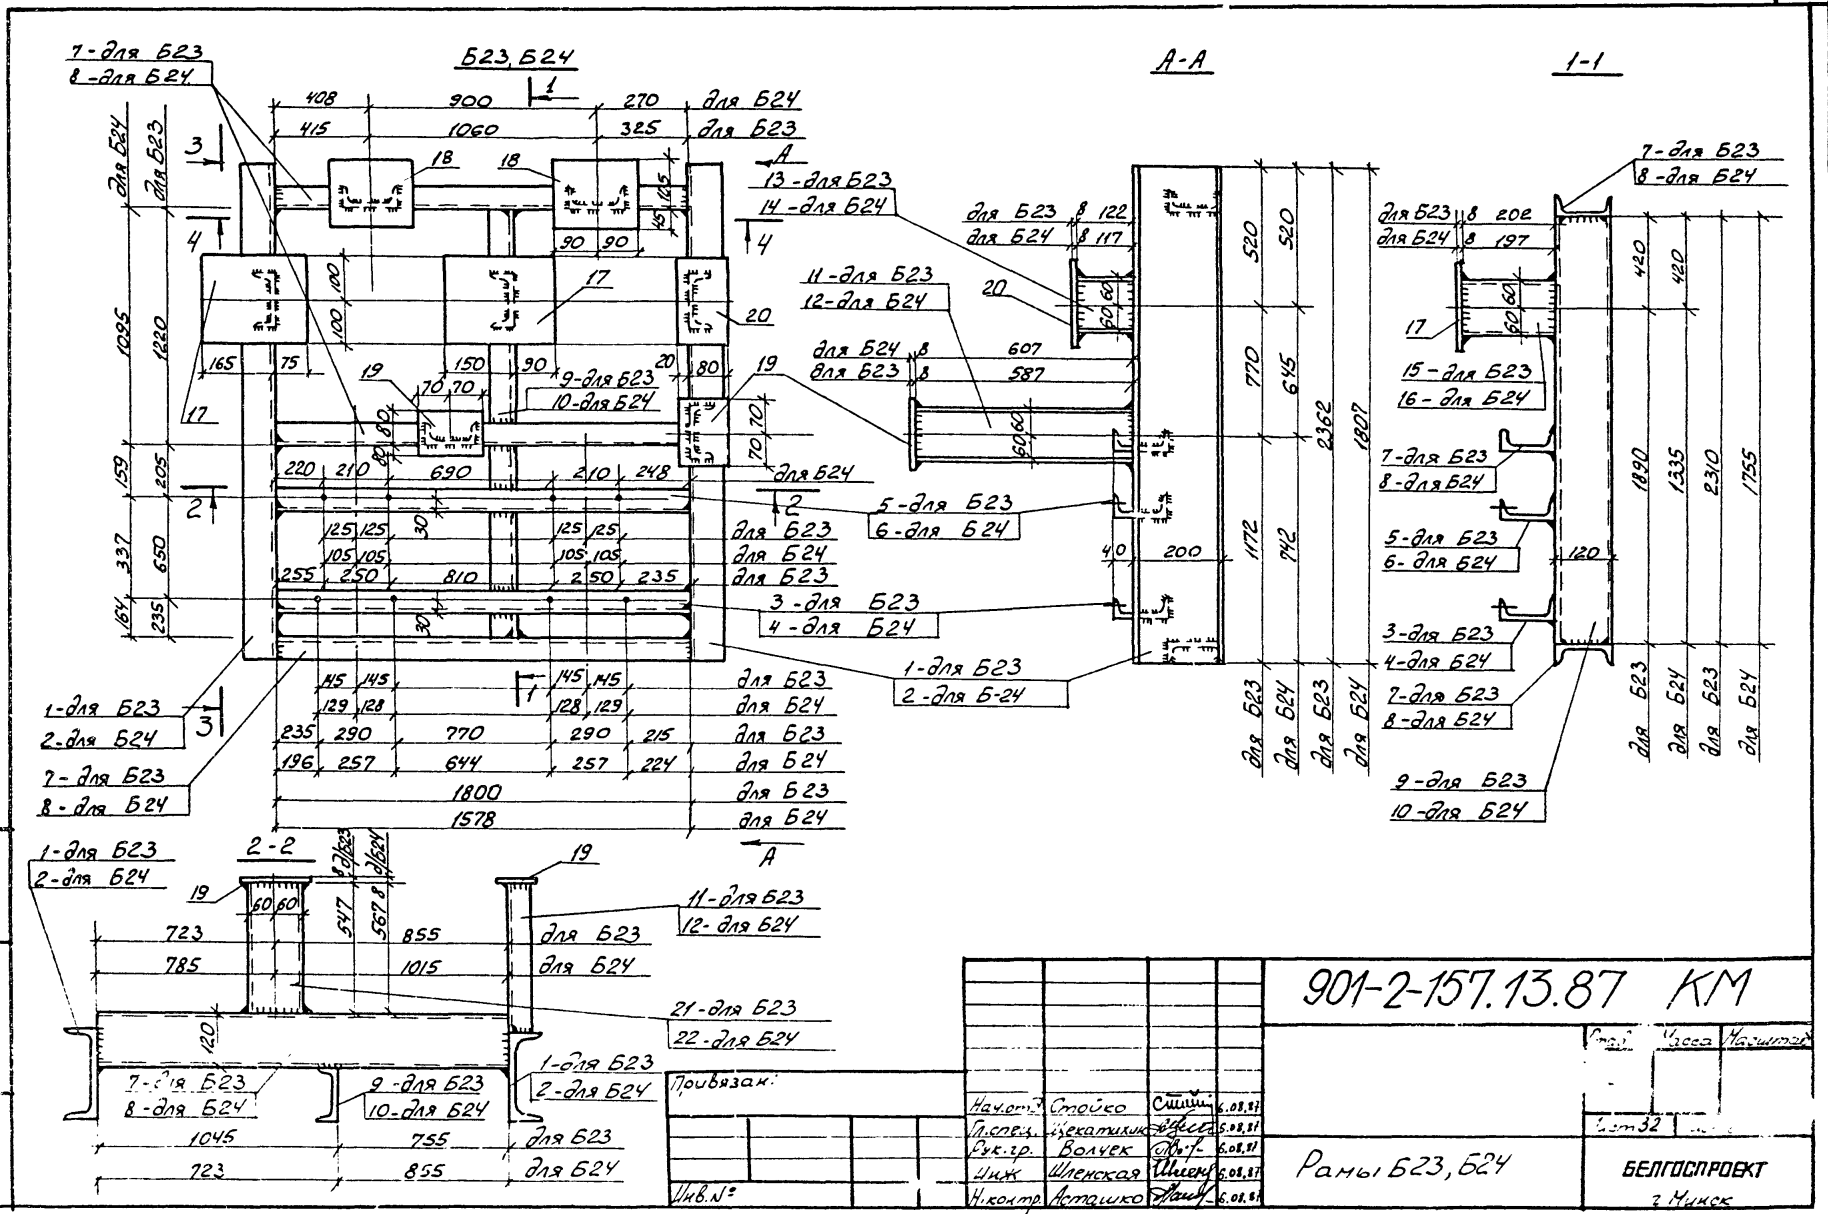 Б23, Б24
7-для Б23
8-для Б24
408 900 270 для Б24
415 1060 325 для Б23
1
для Б24
для Б23
3
4
18
18
А
4
105
45
90 90
100
100
17
20
1095
1220
165 75
150 90
20 80
17
19
70 70
9-для Б23
10-для Б24
19
80
80
70 70
159
205
220 210 690 210 248 для Б24
2
2
30
5-для Б23
6-для Б24
125 125 125 125 для Б23
105 105 105 105 для Б24
255 250 810 250 235 для Б23
337
650
164
235
30
3-для Б23
4-для Б24
1-для Б23
2-для Б-24
1
145 145 145 145 для Б23
129 128 128 129 для Б24
235 290 770 290 215 для Б23
196 257 644 257 224 для Б24
1800 для Б23
1578 для Б24
А
1-для Б23
2-для Б24
3
7-для Б23
8-для Б24
А-А
13-для Б23
14-для Б24
для Б23 8 122
для Б24 8 117
11-для Б23
12-для Б24
20
60 60
для Б24 8 607
для Б23 8 587
19
60 60
40 200
520
520
770
645
2362
1807
1172
742
для Б23
для Б24
для Б23
для Б24
1-1
7-для Б23
8-для Б24
для Б23 8 202
для Б24 8 197
60 60
17
15-для Б23
16-для Б24
420
420
7-для Б23
8-для Б24
1890
1335
2310
1755
5-для Б23
6-для Б24
120
3-для Б23
4-для Б24
7-для Б23
8-для Б24
для Б23
для Б24
для Б23
для Б24
9-для Б23
10-для Б24
2-2
1-для Б23
2-для Б24
19
8 д/Б23
8 д/Б24
19
60 60
547
567
11-для Б23
12-для Б24
723 855 для Б23
785 1015 для Б24
21-для Б23
22-для Б24
120
7-для Б23
8-для Б24
9-для Б23
10-для Б24
1-для Б23
2-для Б24
1045 755 для Б23
723 855 для Б24
Привязан:
Инв.№
Нач.отд Стойко 6.08.87
Гл.спец. 6.08.87
Рук.гр. Волчек 6.08.87
Инж Шленская 6.08.87
Н.контр. Асташко 6.08.87
901-2-157.13.87 КМ
Стад. Масса Масштаб
Лист 32
Рамы Б23, Б24
БЕЛГОСПРОЕКТ
г. Минск